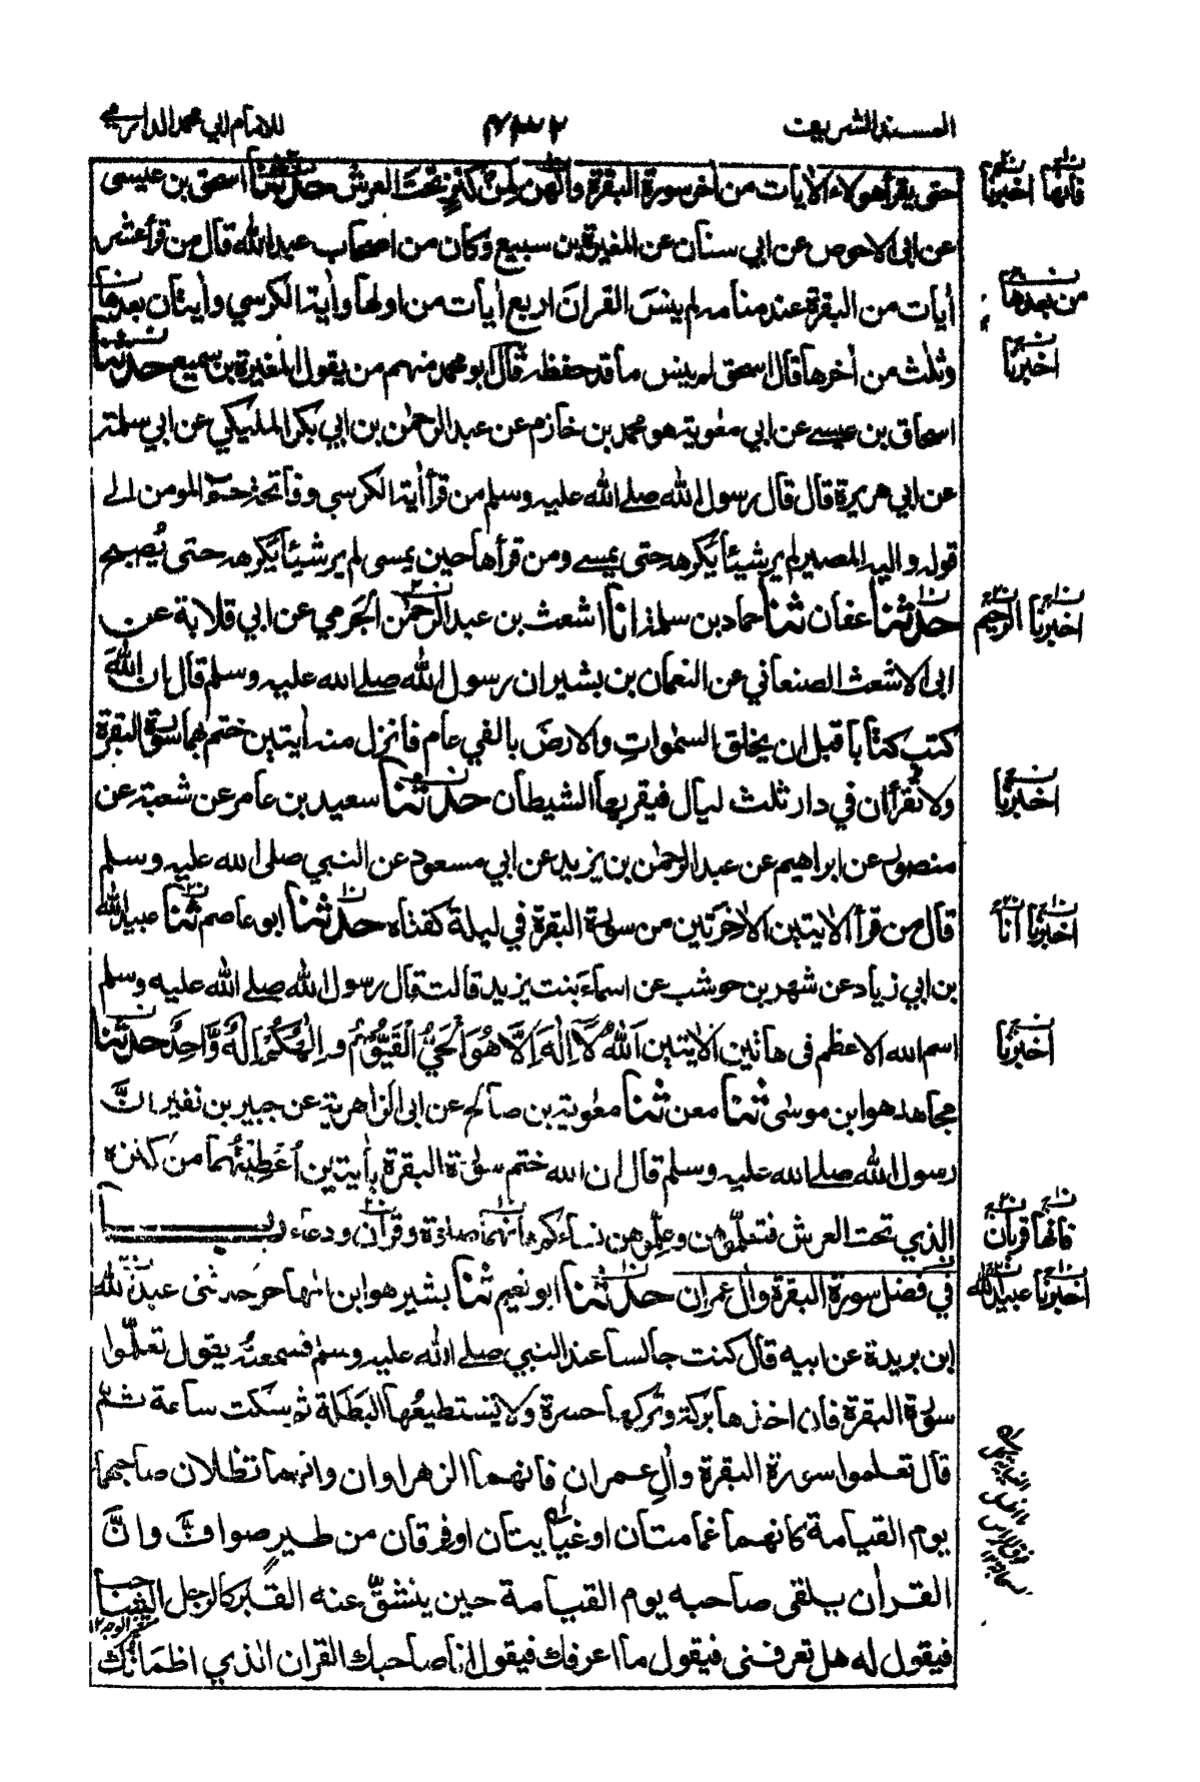 المسند الشريف ٤٣٢ للامام ابي محمد الدارمي
حتى يقرأ هولاء الأيات من أخر سورة البقرة وانهن لمن كنز تحت العرش حدثنا اسحق بن عيسى
عن ابى الاحوص عن ابي سنان عن المغيرة بن سبيع وكان من اصحاب عبد الله قال من قرأ عشر
أيات من البقرة عند منامه لم ينس القران اربع أيات من اولها وأية الكرسي وأيتان بعدها
وثلث من أخرها قال اسحق لم ينس ما قد حفظه قال ابو محمد منهم من يقول المغيرة بن سميع حدثنا
اسحاق بن عيسے عن ابي معوية هو محمد بن خازم عن عبد الرحمٰن بن ابي بكر المليكي عن ابي سلمة
عن ابي هريرة قال قال رسول الله صلے الله عليه وسلم من قرأ أية الكرسي وفاتحة حم المومن الے
قوله واليه المصير لم ير شيئا يكرهه حتى يمسے ومن قرأها حين يمسى لم ير شيئا يكرهه حتى يُصبح
حدثنا عفان ثنا حماد بن سلمة انا اشعث بن عبد الرحمٰن الجَرمي عن ابي قلابة عن
ابى الاشعث الصنعاني عن النعمان بن بشير ان رسول الله صلے الله عليه وسلم قال ان اللهَ
كتب كتابا قبل ان يخلق السمٰواتِ والارضَ بالفي عام فانزل منه أيتين ختم بهما سورة البقرة
ولا تُقرأان في دار ثلث ليال فيقربها الشيطان حدثنا سعيد بن عامر عن شعبة عن
منصور عن ابراهيم عن عبد الرحمٰن بن يزيد عن ابي مسعود عن النبي صلى الله عليه وسلم
قال من قرأ الأيتين الأخرتين من سورة البقرة في ليلة كفتاه حدثنا ابو عاصم ثنا عبيد الله
بن ابي زياد عن شهر بن حوشب عن اسماءَ بنت يزيد قالت قال رسول الله صلے الله عليه وسلم
اسم الله الاعظم فى هاتين الأيتين اَللهُ لَآ اِلٰهَ اِلَّا هُوَ الْحَيُّ الْقَيُّوْمُ و اِلٰهُكُمْ اِلٰهٌ وَّاحِدٌ حدثنا
مجاهد هو ابن موسٰى ثنا معن ثنا معٰوية بن صالح عن ابى الزاهرية عن جبير بن نفير انَّ
رسول الله صلے الله عليه وسلم قال ان الله ختم سورة البقرة بأيتين اُعْطِيْتُهُما من كنزه
الذي تحت العرش فتعلموهن وعلموهن نساءكم فانهما صلوة وقرأن ودعاء باب
في فضل سورة البقرة وأل عمران حدثنا ابو نعيم ثنا بشير هو ابن المهاجر حدثنى عبد الله
ابن بريدة عن ابيه قال كنت جالسا عند النبي صلے الله عليه وسلم فسمعته يقول تعلَّموا
سورة البقرة فان اخذها بركة وتركها حسرة ولا يَستطيعُها البَطَلة ثم سكت ساعة ثمَّ
قال تعلموا سورة البقرة وألِ عمران فانهما الزهراوان وانهما تظلان صاحبهما
يوم القيامة كانهما غمامتان او غيايتان او فرقان من طيرٍ صوافَّ وانَّ
القرأن يلقى صاحبه يوم القيامة حين ينشقُّ عنه القبر كالرجل الشاحب
فيقول له هل تعرفنى فيقول ما اعرفك فيقول انا صاحبك القران الذي اظمأتك
فانها اخبرنا
من بعدها
اخبرنا
اخبرنا الرحيم
اخبرنا
اخبرنا انا
اخبرنا
فانها قربان
اخبرنا عبيد الله
متغير الوجه ١٢